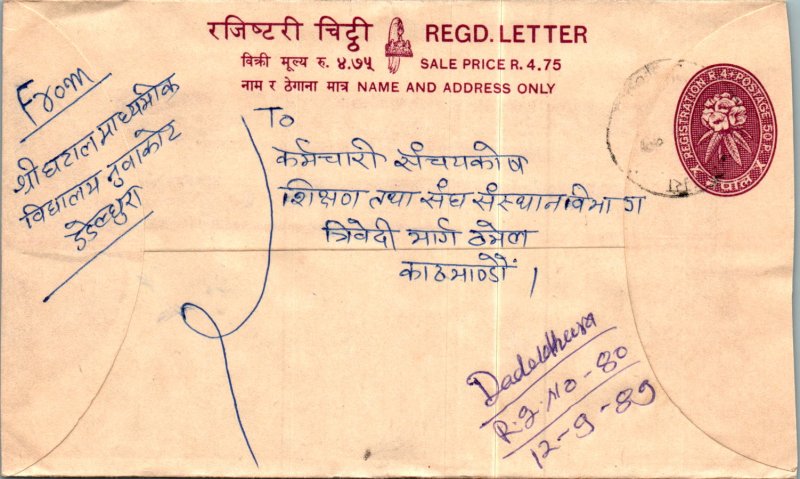 रजिष्टरी चिट्ठी REGD. LETTER
बिक्री मूल्य रु. ४.७५ SALE PRICE R. 4.75
नाम र ठेगाना मात्र NAME AND ADDRESS ONLY
REGISTRATION R. 4+POSTAGE 50 P.
नेपाल
From
श्री घटाल माध्यमीक
विद्यालय नुवाकोट
डडेल्धुरा
To
कर्मचारी संचयकोष
शिक्षण तथा संघ संस्थान विभाग
त्रिवेदी मार्ग ठमेल
काठमाण्डौं ।
Dadeldhura
R.g. No - 80
12-9-89